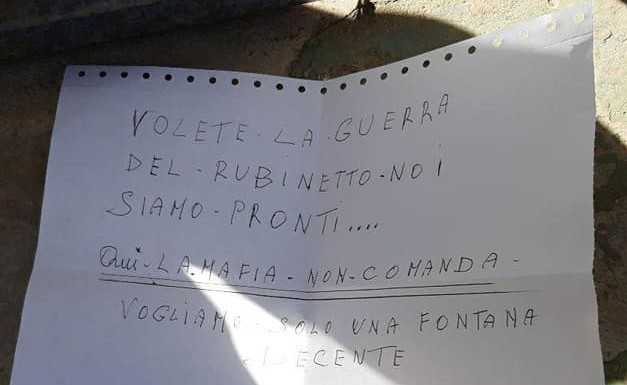 VOLETE-LA-GUERRA
DEL-RUBINETTO-NOI
SIAMO-PRONTI....
Qui-LA-MAFIA-NON-COMANDA-
VOGLIAMO-SOLO UNA FONTANA
DECENTE